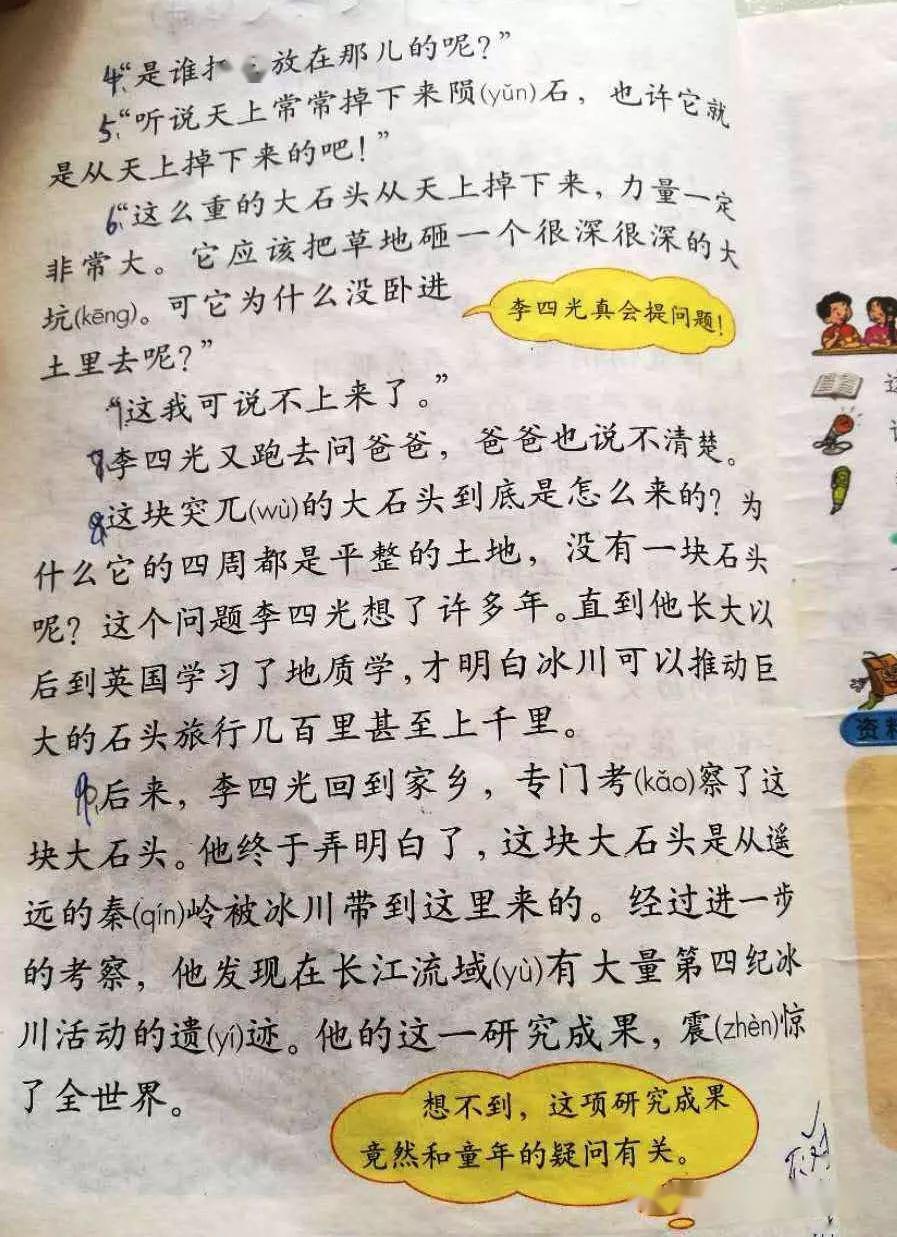 4、“是谁把 放在那儿的呢？”
5、“听说天上常常掉下来陨(yǔn)石，也许它就
是从天上掉下来的吧！”
6、“这么重的大石头从天上掉下来，力量一定
非常大。它应该把草地砸一个很深很深的大
坑(kēng)。可它为什么没卧进
土里去呢？”
李四光真会提问题！
“这我可说不上来了。”
8、李四光又跑去问爸爸，爸爸也说不清楚。
这块突兀(wù)的大石头到底是怎么来的？为
什么它的四周都是平整的土地，没有一块石头
呢？这个问题李四光想了许多年。直到他长大以
后到英国学习了地质学，才明白冰川可以推动巨
大的石头旅行几百里甚至上千里。
后来，李四光回到家乡，专门考(kǎo)察了这
块大石头。他终于弄明白了，这块大石头是从遥
远的秦(qín)岭被冰川带到这里来的。经过进一步
的考察，他发现在长江流域(yù)有大量第四纪冰
川活动的遗(yí)迹。他的这一研究成果，震(zhèn)惊
了全世界。
想不到，这项研究成果
竟然和童年的疑问有关。
资料